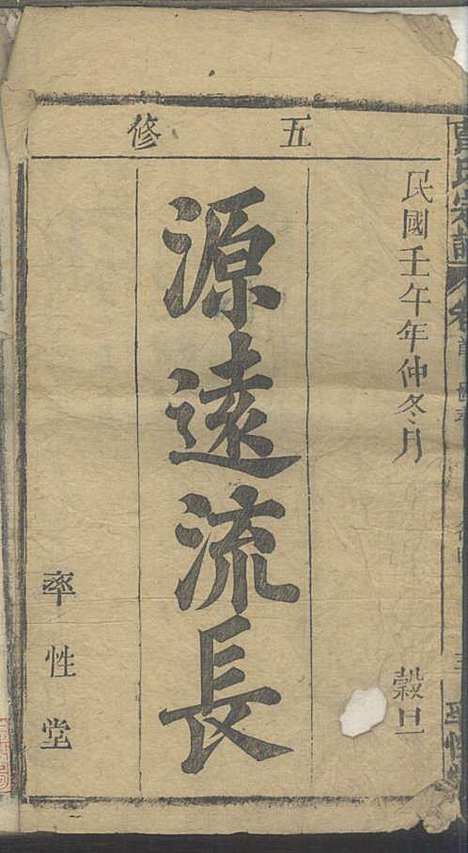 五修
民國壬午年仲冬月
穀旦
源遠流長
率性堂
氏宗譜